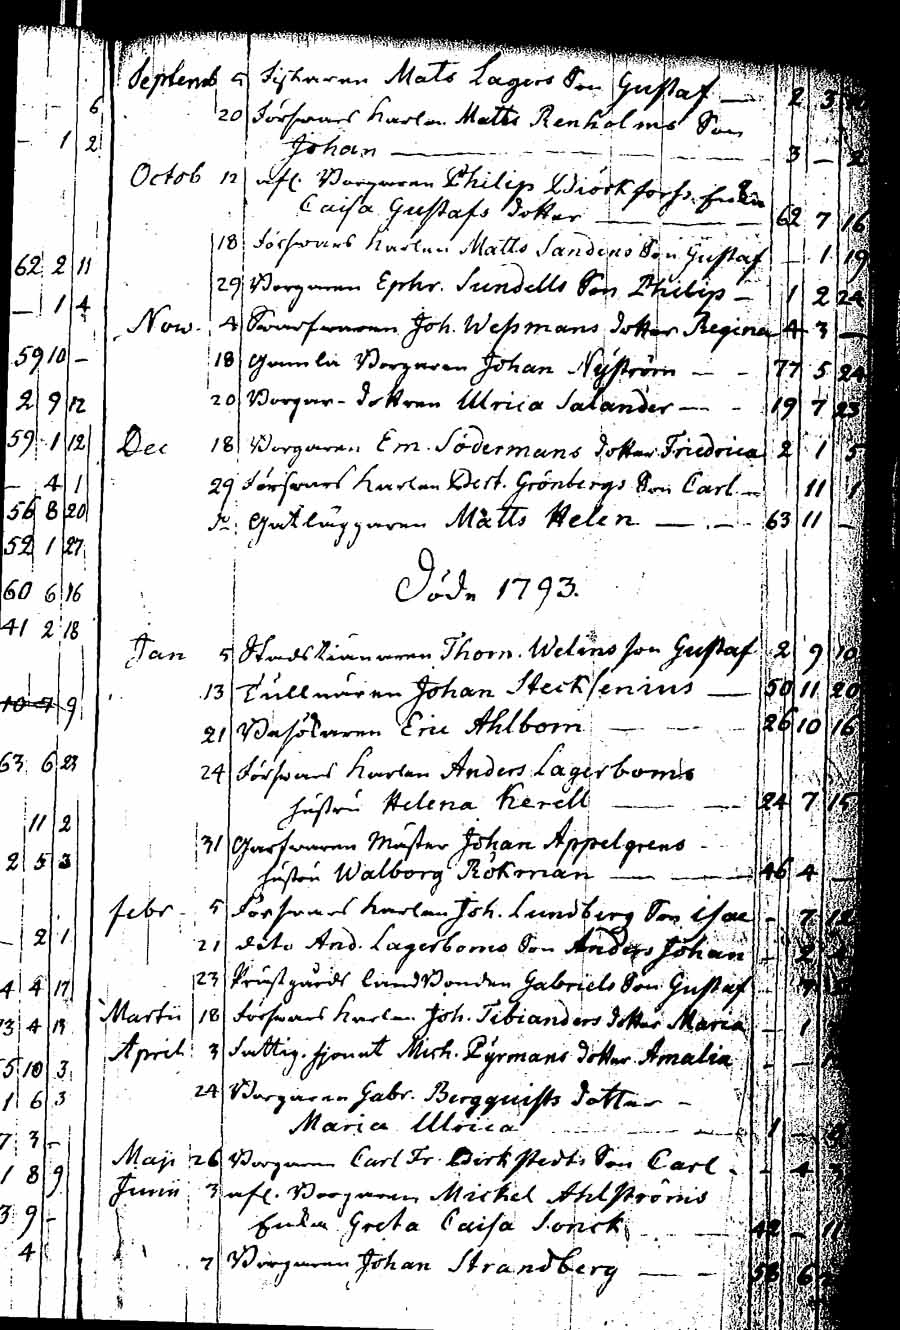 6
1 2
62 2 11
1 4
59 10 -
2 9 12
59 1 12
- 4 1
56 8 20
52 1 27
60 6 16
41 2 18
9
63 6 23
11 2
2 5 3
2 1
4 4 17
4 13
5 10 3
1 6 3
7 3 -
1 8 9
3 9 -
4
Septemb 5 Fiskaren Mats Lagers Son Gustaf — 2 3
20 Försvars Karlen Matts Renholms Son
Johan — 3 — 2
Octob 12 afl. Borgaren Philip Biörkforss Enka
Caisa Gustafs dotter — 62 7 16
18 Försvars Karlen Matts Sandens Son Gustaf - 1 19
29 Borgaren Ephr. Sundells Son Philip - 1 2 24
Now. 4 Swarfwaren Joh. Wessmans dotter Regina 4 3 —
18 Gamla Borgaren Johan Nyström - - 77 5 24
20 Borgar-dottren Ulrica Salander - - 19 7 23
Dec 18 Borgaren Em. Södermans dotter Fredrica 2 1 5
29 Försvars Karlen Bert. Grönbergs Son Carl - 11 1
Matts Helen — 63 11 -
Döde 1793.
Jan 5 Thom. Welins son Gustaf 2 9 10
13 Tullnären Johan Stecksenius — 50 11 20
21 Besökaren Eric Ahlbom — 26 10 16
24 Försvars Karlen Anders Lagerboms
hustru Helena Kerell — 24 7 15
31 Garfwaren Mäster Johan Appelgrens
hustru Walborg Rökman — 46 4 —
febr 5 Försvars Karlen Joh. Lundberg Son Isac - 7 12
21 dito And. Lagerboms Son Anders Johan - 2
23 Prästgårds Landbonden Gabriels Son Gustaf -
Martii 18 Försvars Karlen Joh. Tibianders dotter Maria - 1
April 3 Fattig. hjonet Mich. Pyrmans dotter Amalia - -
24 Borgaren Gabr. Bergquists dotter -
Maria Ulrica — 1 -
Maji 26 Borgaren Carl Fr. Birkstedts Son Carl - - 4
Junii 3 afl. Borgaren Mickel Ahlströms
Enka Greta Caisa Sonck 42 - 11
7 Borgaren Johan Strandberg — 58 6